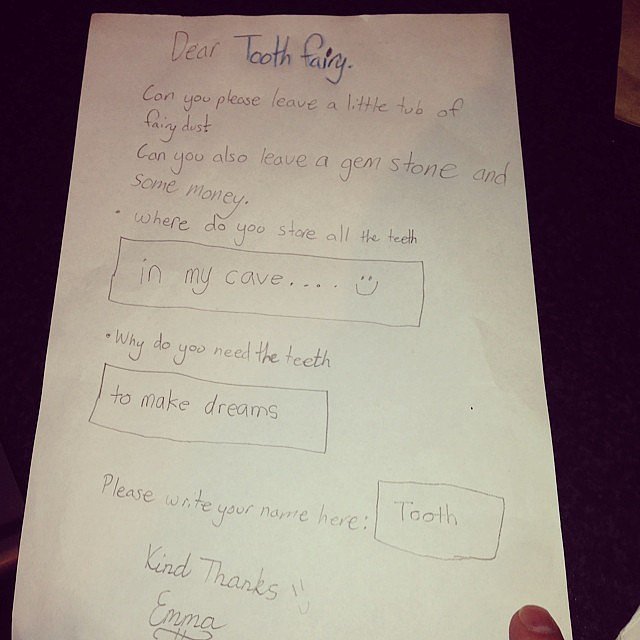 Dear Tooth fairy.
Can you please leave a little tub of
fairy dust
Can you also leave a gem stone and
some money.
• where do you store all the teeth
in my cave.... :)
• Why do you need the teeth
to make dreams
Please write your name here: Tooth
Kind Thanks :)
Emma